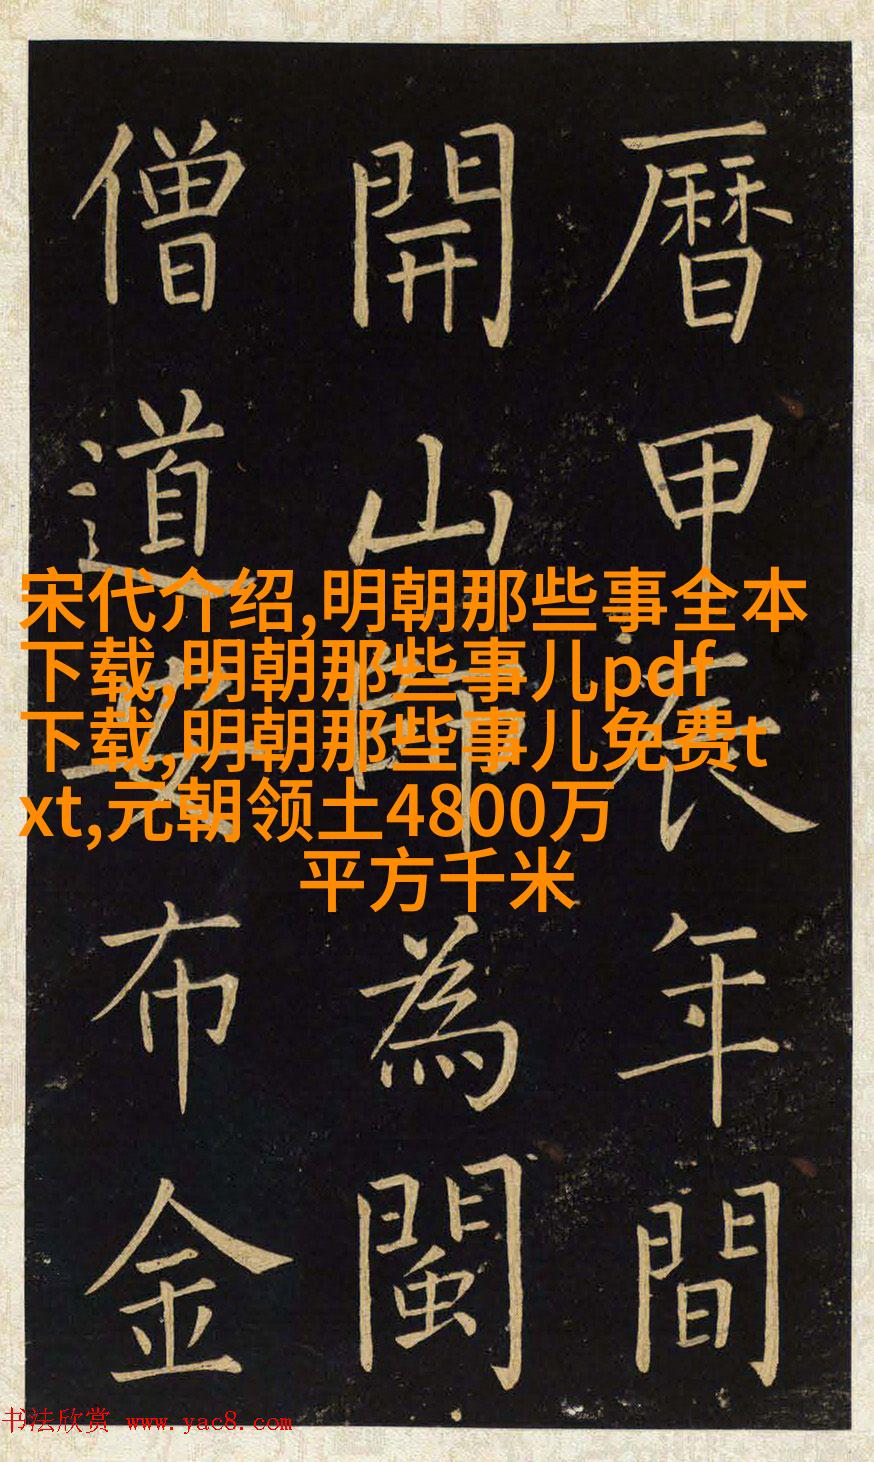 曆甲辰年間
開山師為閩
僧道安布金
宋代介绍,明朝那些事全本
下载,明朝那些事儿pdf
下载,明朝那些事儿免费t
xt,元朝领土4800万
平方千米
书法欣赏 www.yac8.com